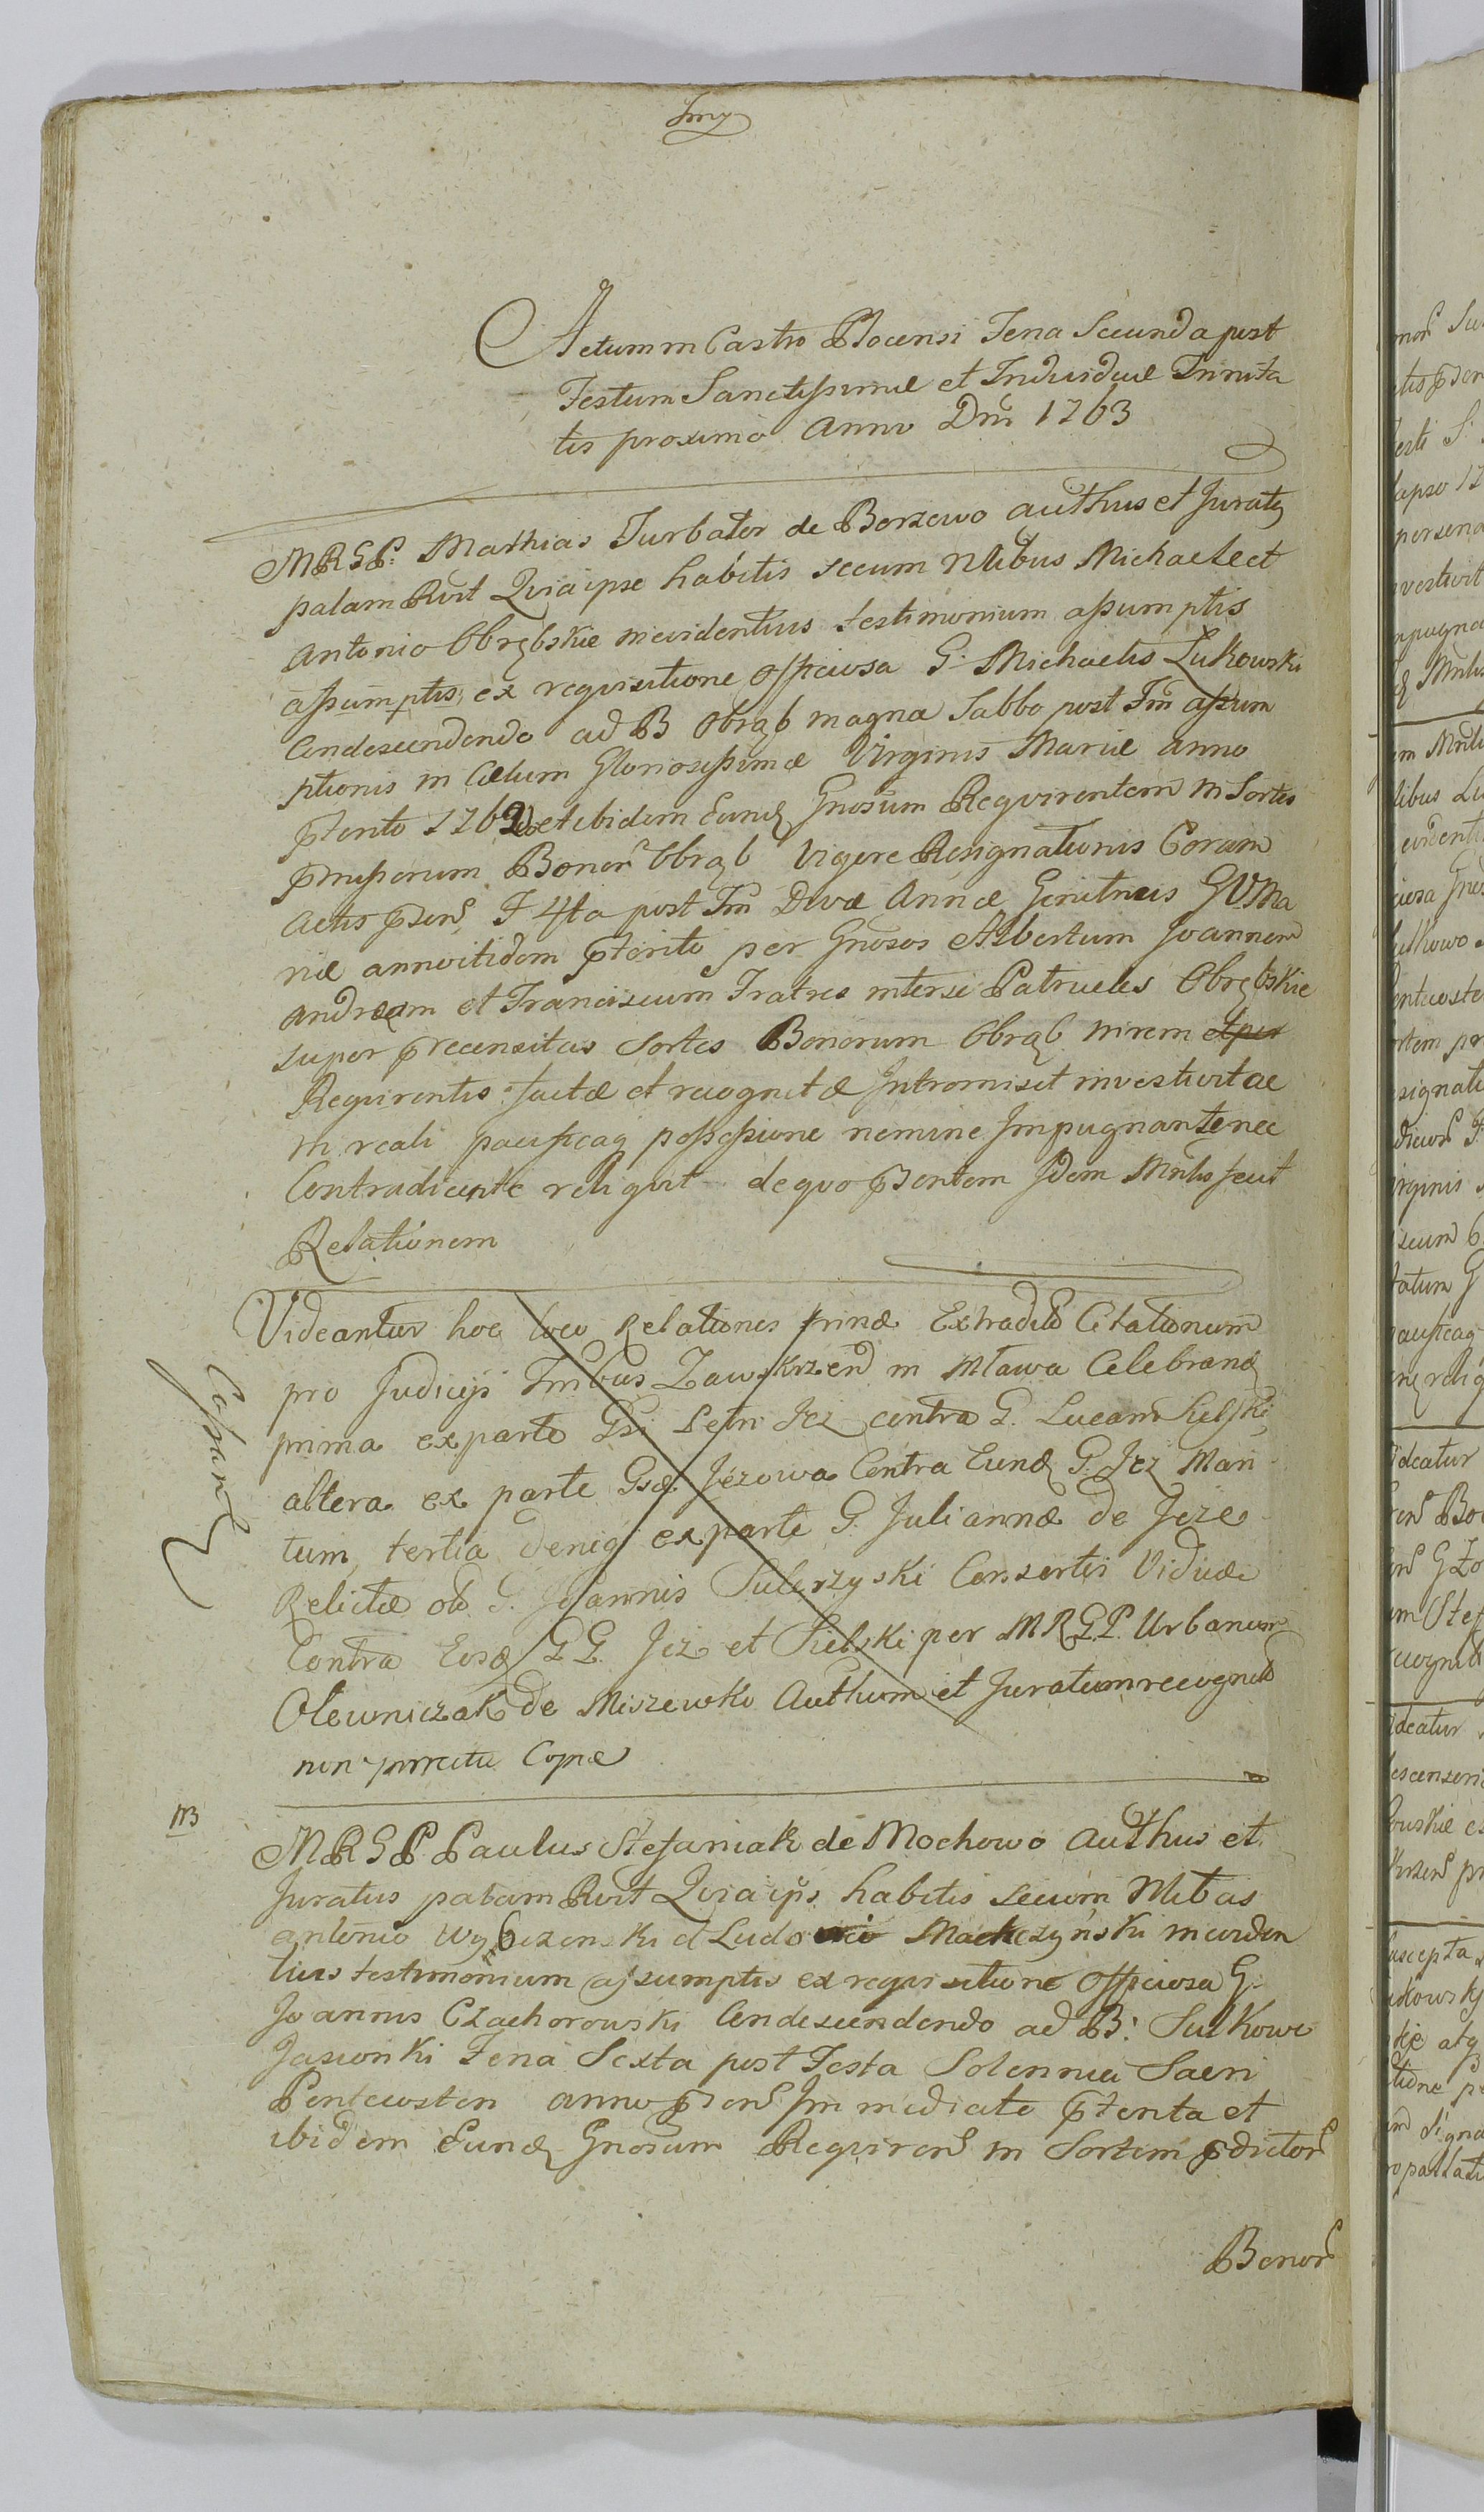 Actum in Castro Plocensi Feria Secunda post
Festum Sanctissimæ et Individuæ Trinita
tis proximo Anno Dni 1763
MRGP. Mathias Turbator de Borzewo authus et Juratq
palam Rvit Quia ipse habitis secum Nlibus Michaele et
Antonio Obrębskie in evidentius testimonium assumptis
assumptis, ex requisitione officiosa G. Michaelis Łukowski
Condescendendo ad B Obrąb magna Sabbo post Fm assum
ptionis in Cælum Gloriosissimæ Virginis Mariæ anno
pterito 1762do et ibidem Eundq Gnosum Requirentem in Sortes
pmissorum Bonor Obrąb Vigore Resignationis Coram
Actis psen F 4ta post Fm Divæ Annæ Genitricis GVMa
riæ anno itidem pterito per Gnosos Albertum Joannem
Andream et Franciscum Fratres inter se Patrueles Obrębskie
super precensitas Sortes Bonorum Obrąb in rem et per
Requirentis factæ et recognitæ Intromisit investivit ac
in reali pacificaq possessione nemine Impugnante nec
Contradicente reliquit de quo psentem Idem Mnlis fecit
Relationem
Videantur hoc loco Relationes trinæ Extradit Citationum
pro Judicijs Tribus Zawskrzen in Mława Celebrand
prima ex parte Gsi Petri Jeż contra G. Lucam Kielski,
altera ex parte Gsæ Jeżowa Contra Eundq G. Jeż Mari
tum, tertia deniq ex parte G. Juliannæ de Jeże
Relictæ ol G. Joannis Sulerzyski Consortis Viduæ
Contra Eosd GG. Jeż et Kielski per MRGP. Urbanum
Olewniczak de Miszewko Authum et Juratum recognit
non porrectæ Copiæ
Cassand
NB
MRGP. Paulus Stefaniak de Mochowo Authus et
Juratus palam Rvit Quia ips habitis secum Nlibus
Antonio et Ludovico Mączyński in eviden
tius testimonium assumptis ex requisitione officiosa G.
Joannis Czachorowski Condescendendo ad B: Sulkowo
Jasionki Feria Sexta post Festa Solennia Sacri
Pentecosten anno psen Immediate pterita et
ibidem Eund Gnosum Requiren in Sortem pdictor
Bonor